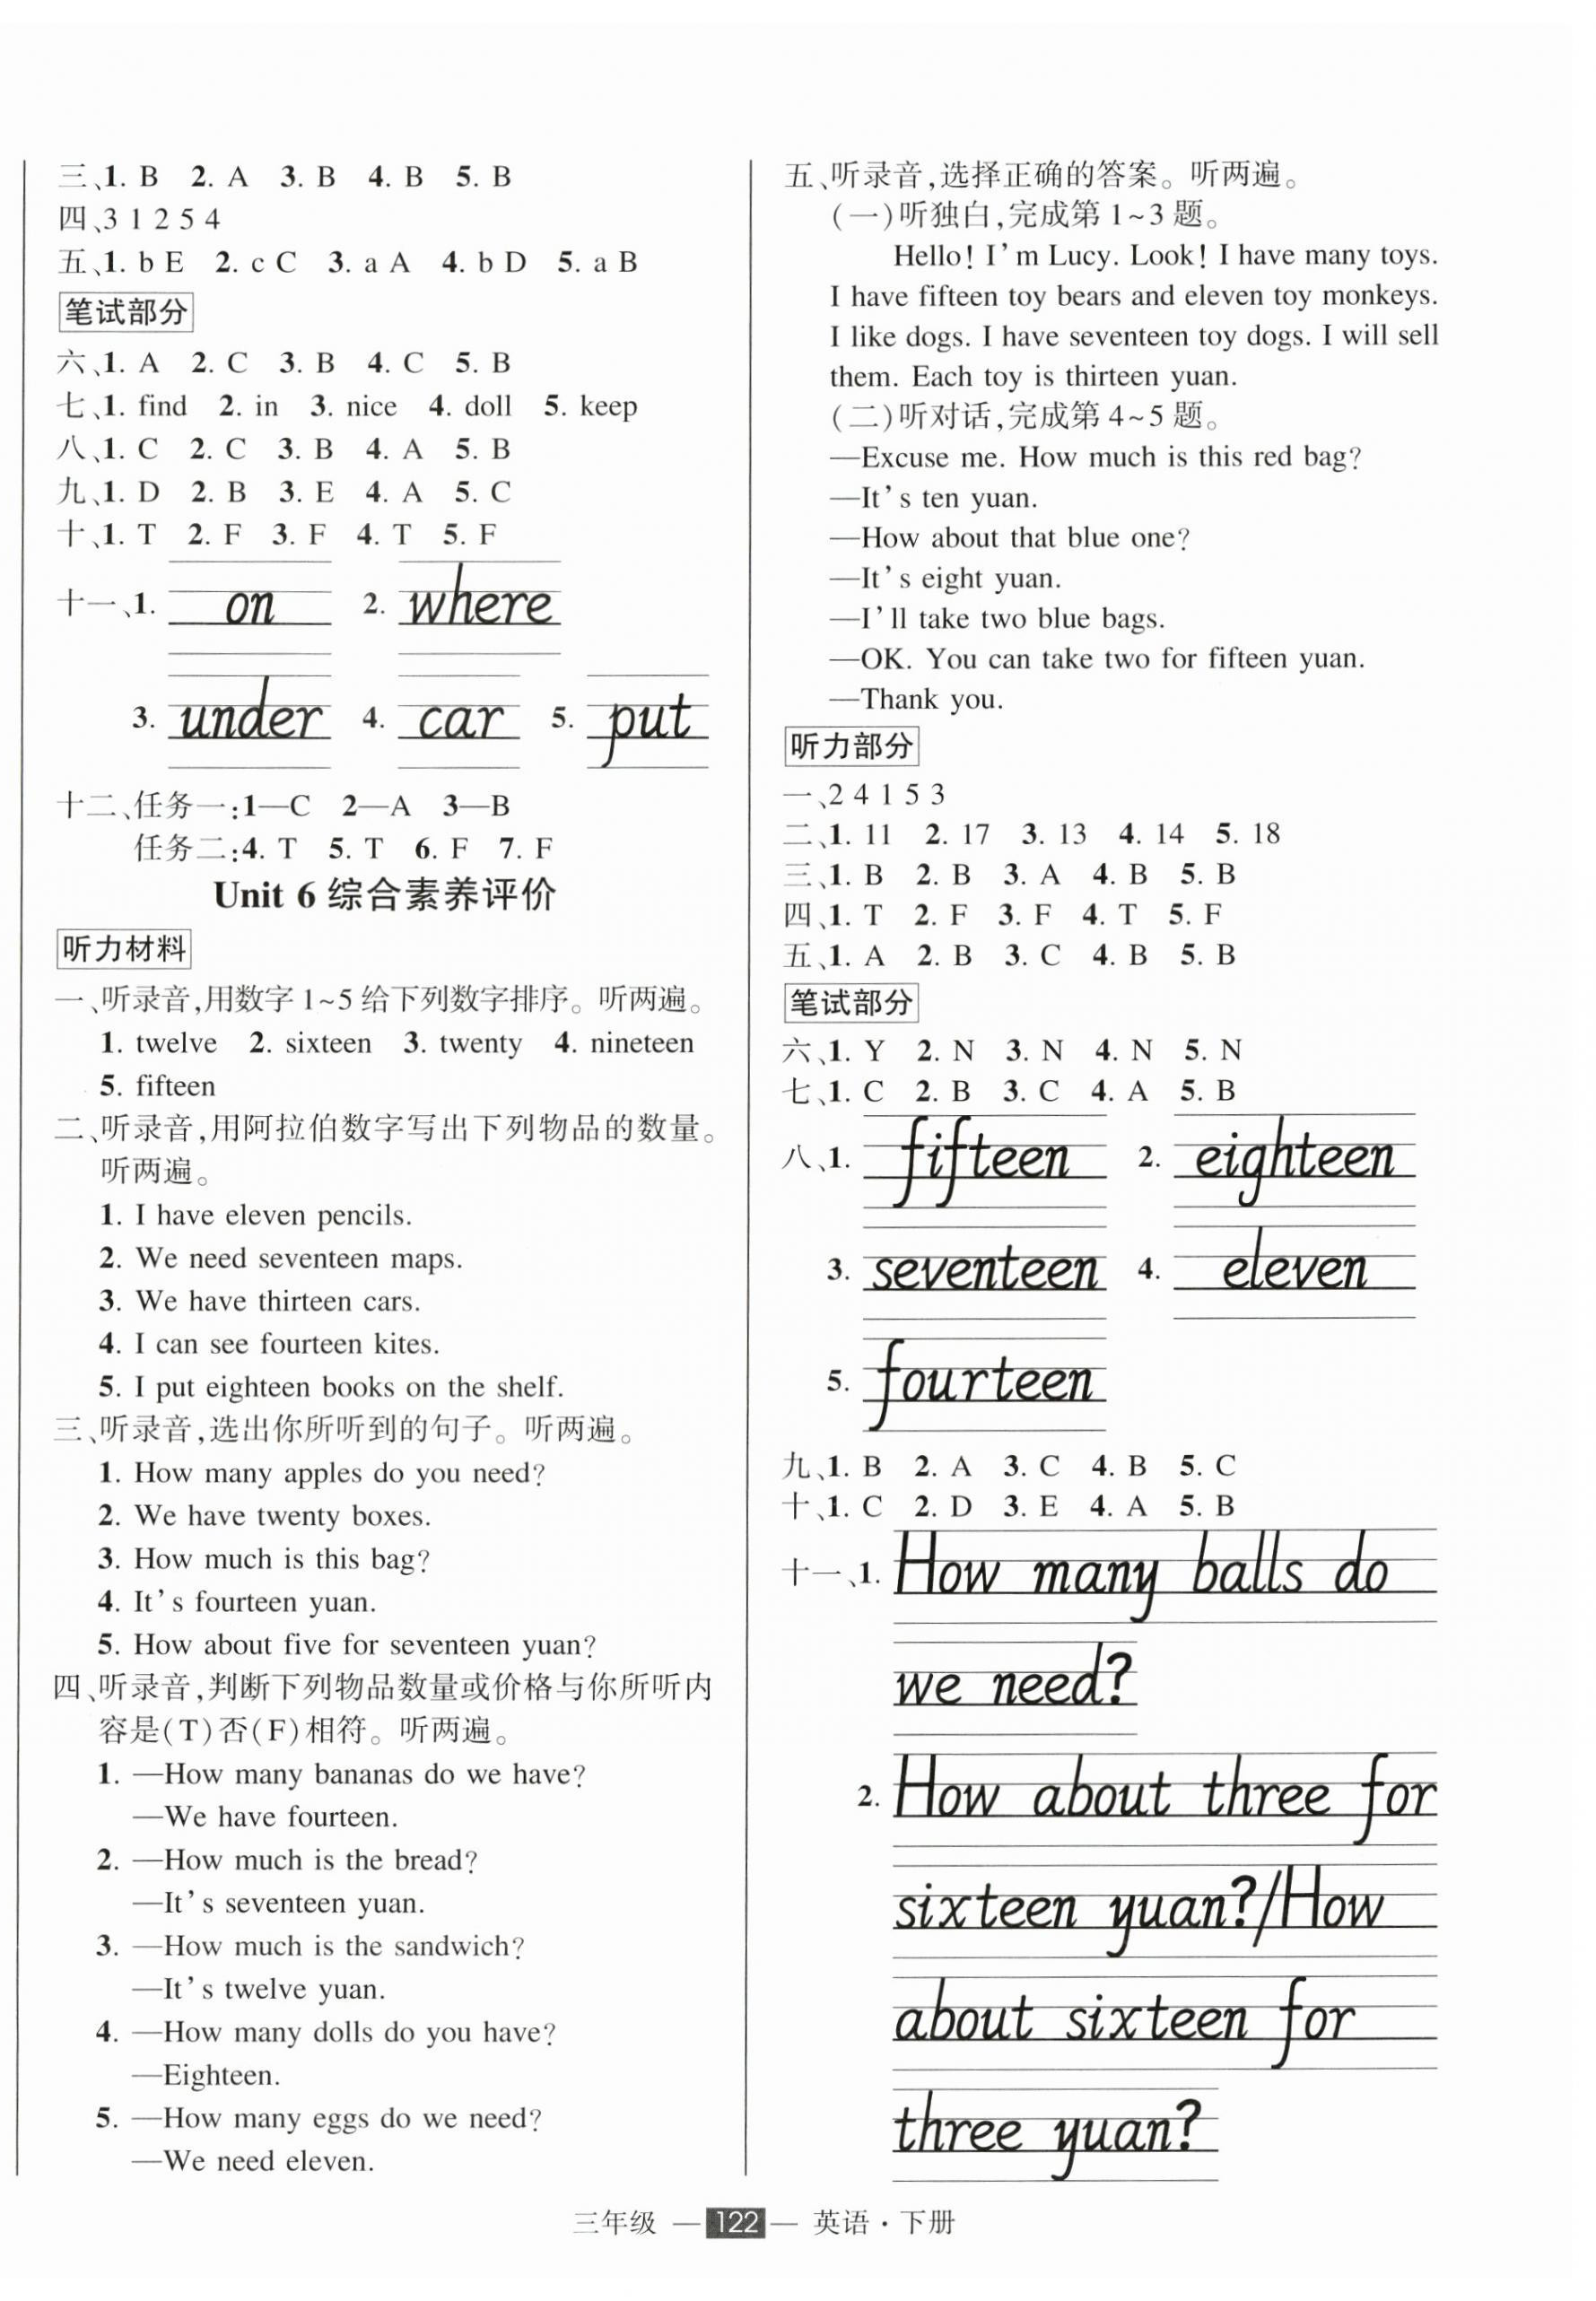 三、1. B 2. A 3. B 4. B 5. B
四、3 1 2 5 4
五、1. b E 2. c C 3. a A 4. b D 5. a B
笔试部分
六、1. A 2. C 3. B 4. C 5. B
七、1. find 2. in 3. nice 4. doll 5. keep
八、1. C 2. C 3. B 4. A 5. B
九、1. D 2. B 3. E 4. A 5. C
十、1. T 2. F 3. F 4. T 5. F
十一、1. on 2. where
3. under 4. car 5. put
十二、任务一:1—C 2—A 3—B
任务二:4. T 5. T 6. F 7. F
Unit 6 综合素养评价
听力材料
一、听录音,用数字1~5给下列数字排序。听两遍。
1. twelve 2. sixteen 3. twenty 4. nineteen
5. fifteen
二、听录音,用阿拉伯数字写出下列物品的数量。
听两遍。
1. I have eleven pencils.
2. We need seventeen maps.
3. We have thirteen cars.
4. I can see fourteen kites.
5. I put eighteen books on the shelf.
三、听录音,选出你所听到的句子。听两遍。
1. How many apples do you need?
2. We have twenty boxes.
3. How much is this bag?
4. It's fourteen yuan.
5. How about five for seventeen yuan?
四、听录音,判断下列物品数量或价格与你所听内
容是(T)否(F)相符。听两遍。
1. —How many bananas do we have?
—We have fourteen.
2. —How much is the bread?
—It's seventeen yuan.
3. —How much is the sandwich?
—It's twelve yuan.
4. —How many dolls do you have?
—Eighteen.
5. —How many eggs do we need?
—We need eleven.
五、听录音,选择正确的答案。听两遍。
(一)听独白,完成第1~3题。
Hello! I'm Lucy. Look! I have many toys.
I have fifteen toy bears and eleven toy monkeys.
I like dogs. I have seventeen toy dogs. I will sell
them. Each toy is thirteen yuan.
(二)听对话,完成第4~5题。
—Excuse me. How much is this red bag?
—It's ten yuan.
—How about that blue one?
—It's eight yuan.
—I'll take two blue bags.
—OK. You can take two for fifteen yuan.
—Thank you.
听力部分
一、2 4 1 5 3
二、1. 11 2. 17 3. 13 4. 14 5. 18
三、1. B 2. B 3. A 4. B 5. B
四、1. T 2. F 3. F 4. T 5. F
五、1. A 2. B 3. C 4. B 5. B
笔试部分
六、1. Y 2. N 3. N 4. N 5. N
七、1. C 2. B 3. C 4. A 5. B
八、1. fifteen 2. eighteen
3. seventeen 4. eleven
5. fourteen
九、1. B 2. A 3. C 4. B 5. C
十、1. C 2. D 3. E 4. A 5. B
十一、1. How many balls do
we need?
2. How about three for
sixteen yuan?/How
about sixteen for
three yuan?
三年级 — 122 — 英语·下册